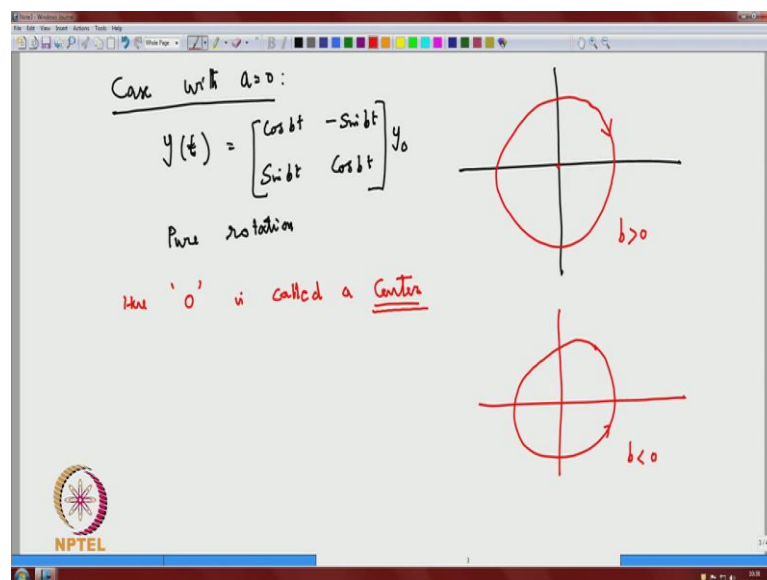 Note3 - Windows Journal
File Edit View Insert Actions Tools Help
Case with a=0:
y(t) = [Cos bt -Sin bt
Sin bt Cos bt] y₀
Pure rotation
b>0
Here '0' is called a Center
b<0
NPTEL